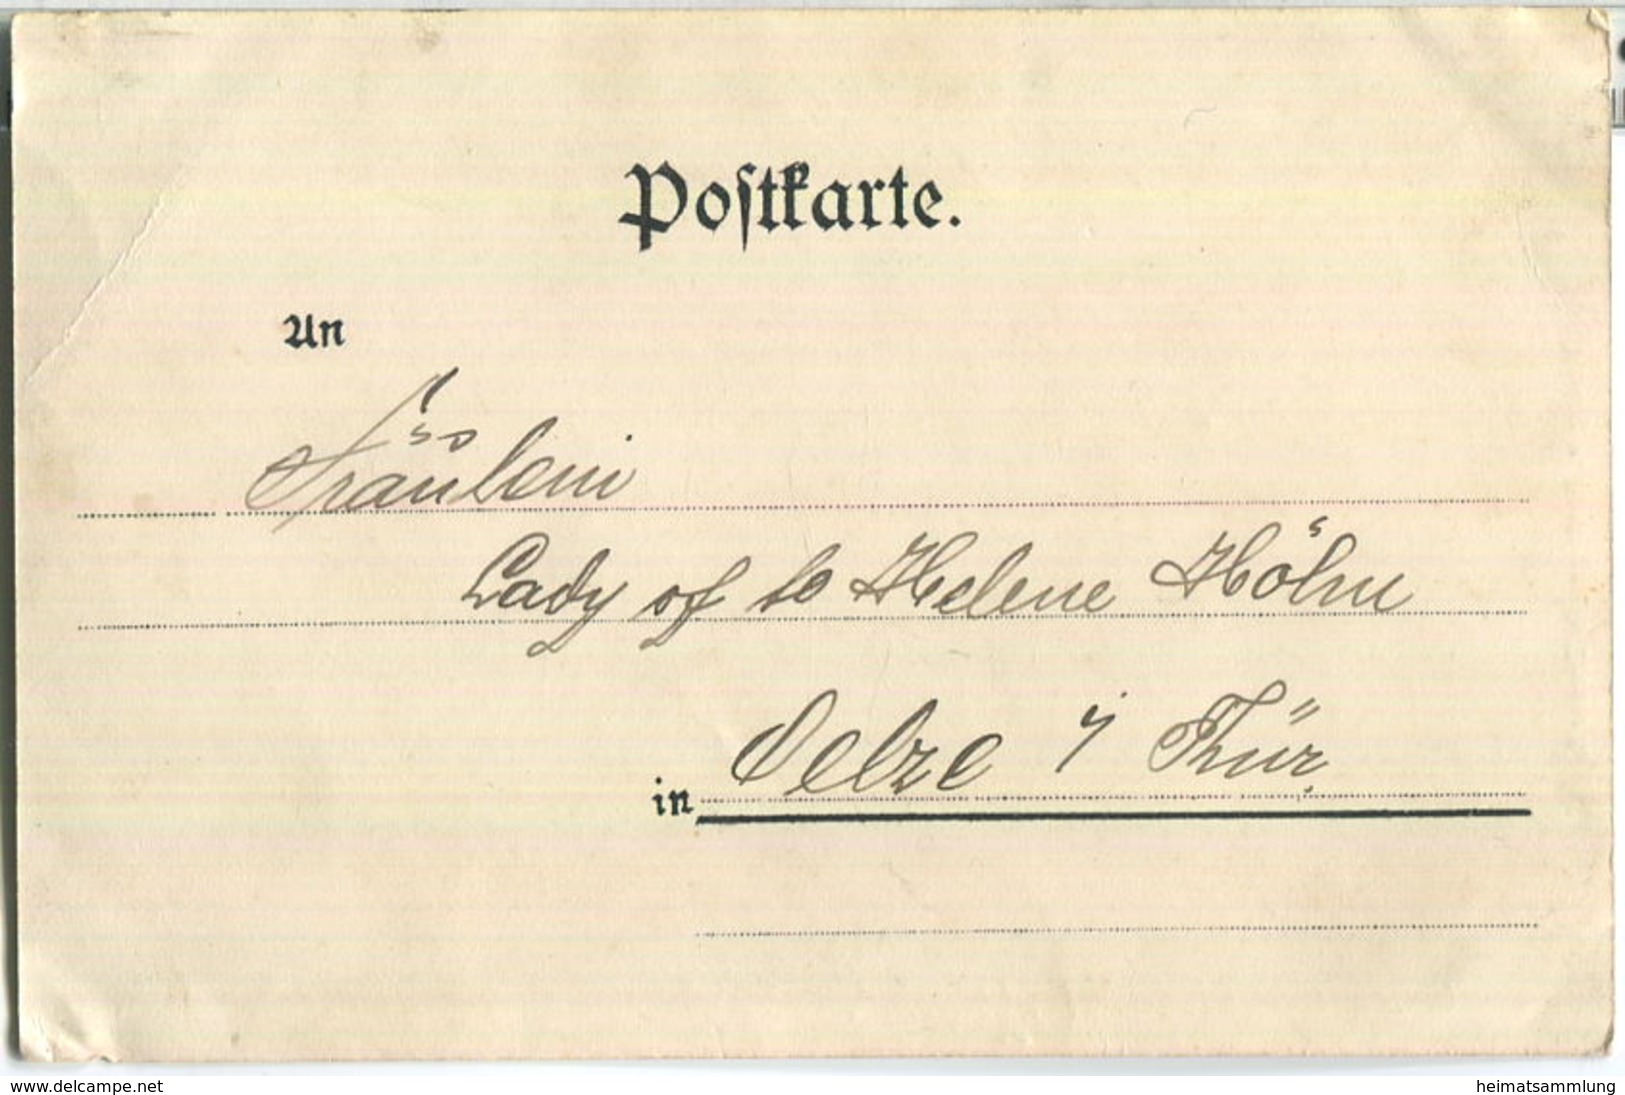 Postkarte.
An
Fräulein
Lady of to Helene Höhn
in Oelze i/ Thür.
www.delcampe.net
heimatsammlung